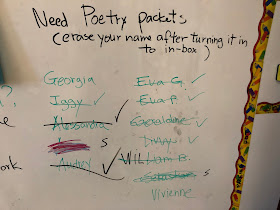 Need Poetry packets
(erase your name after turning it in
to in-box)
Georgia
Iggy
Alessandra
S
Audry
Eva G.
Eva P.
Geraldine
William B.
S
Vivienne
?
ork